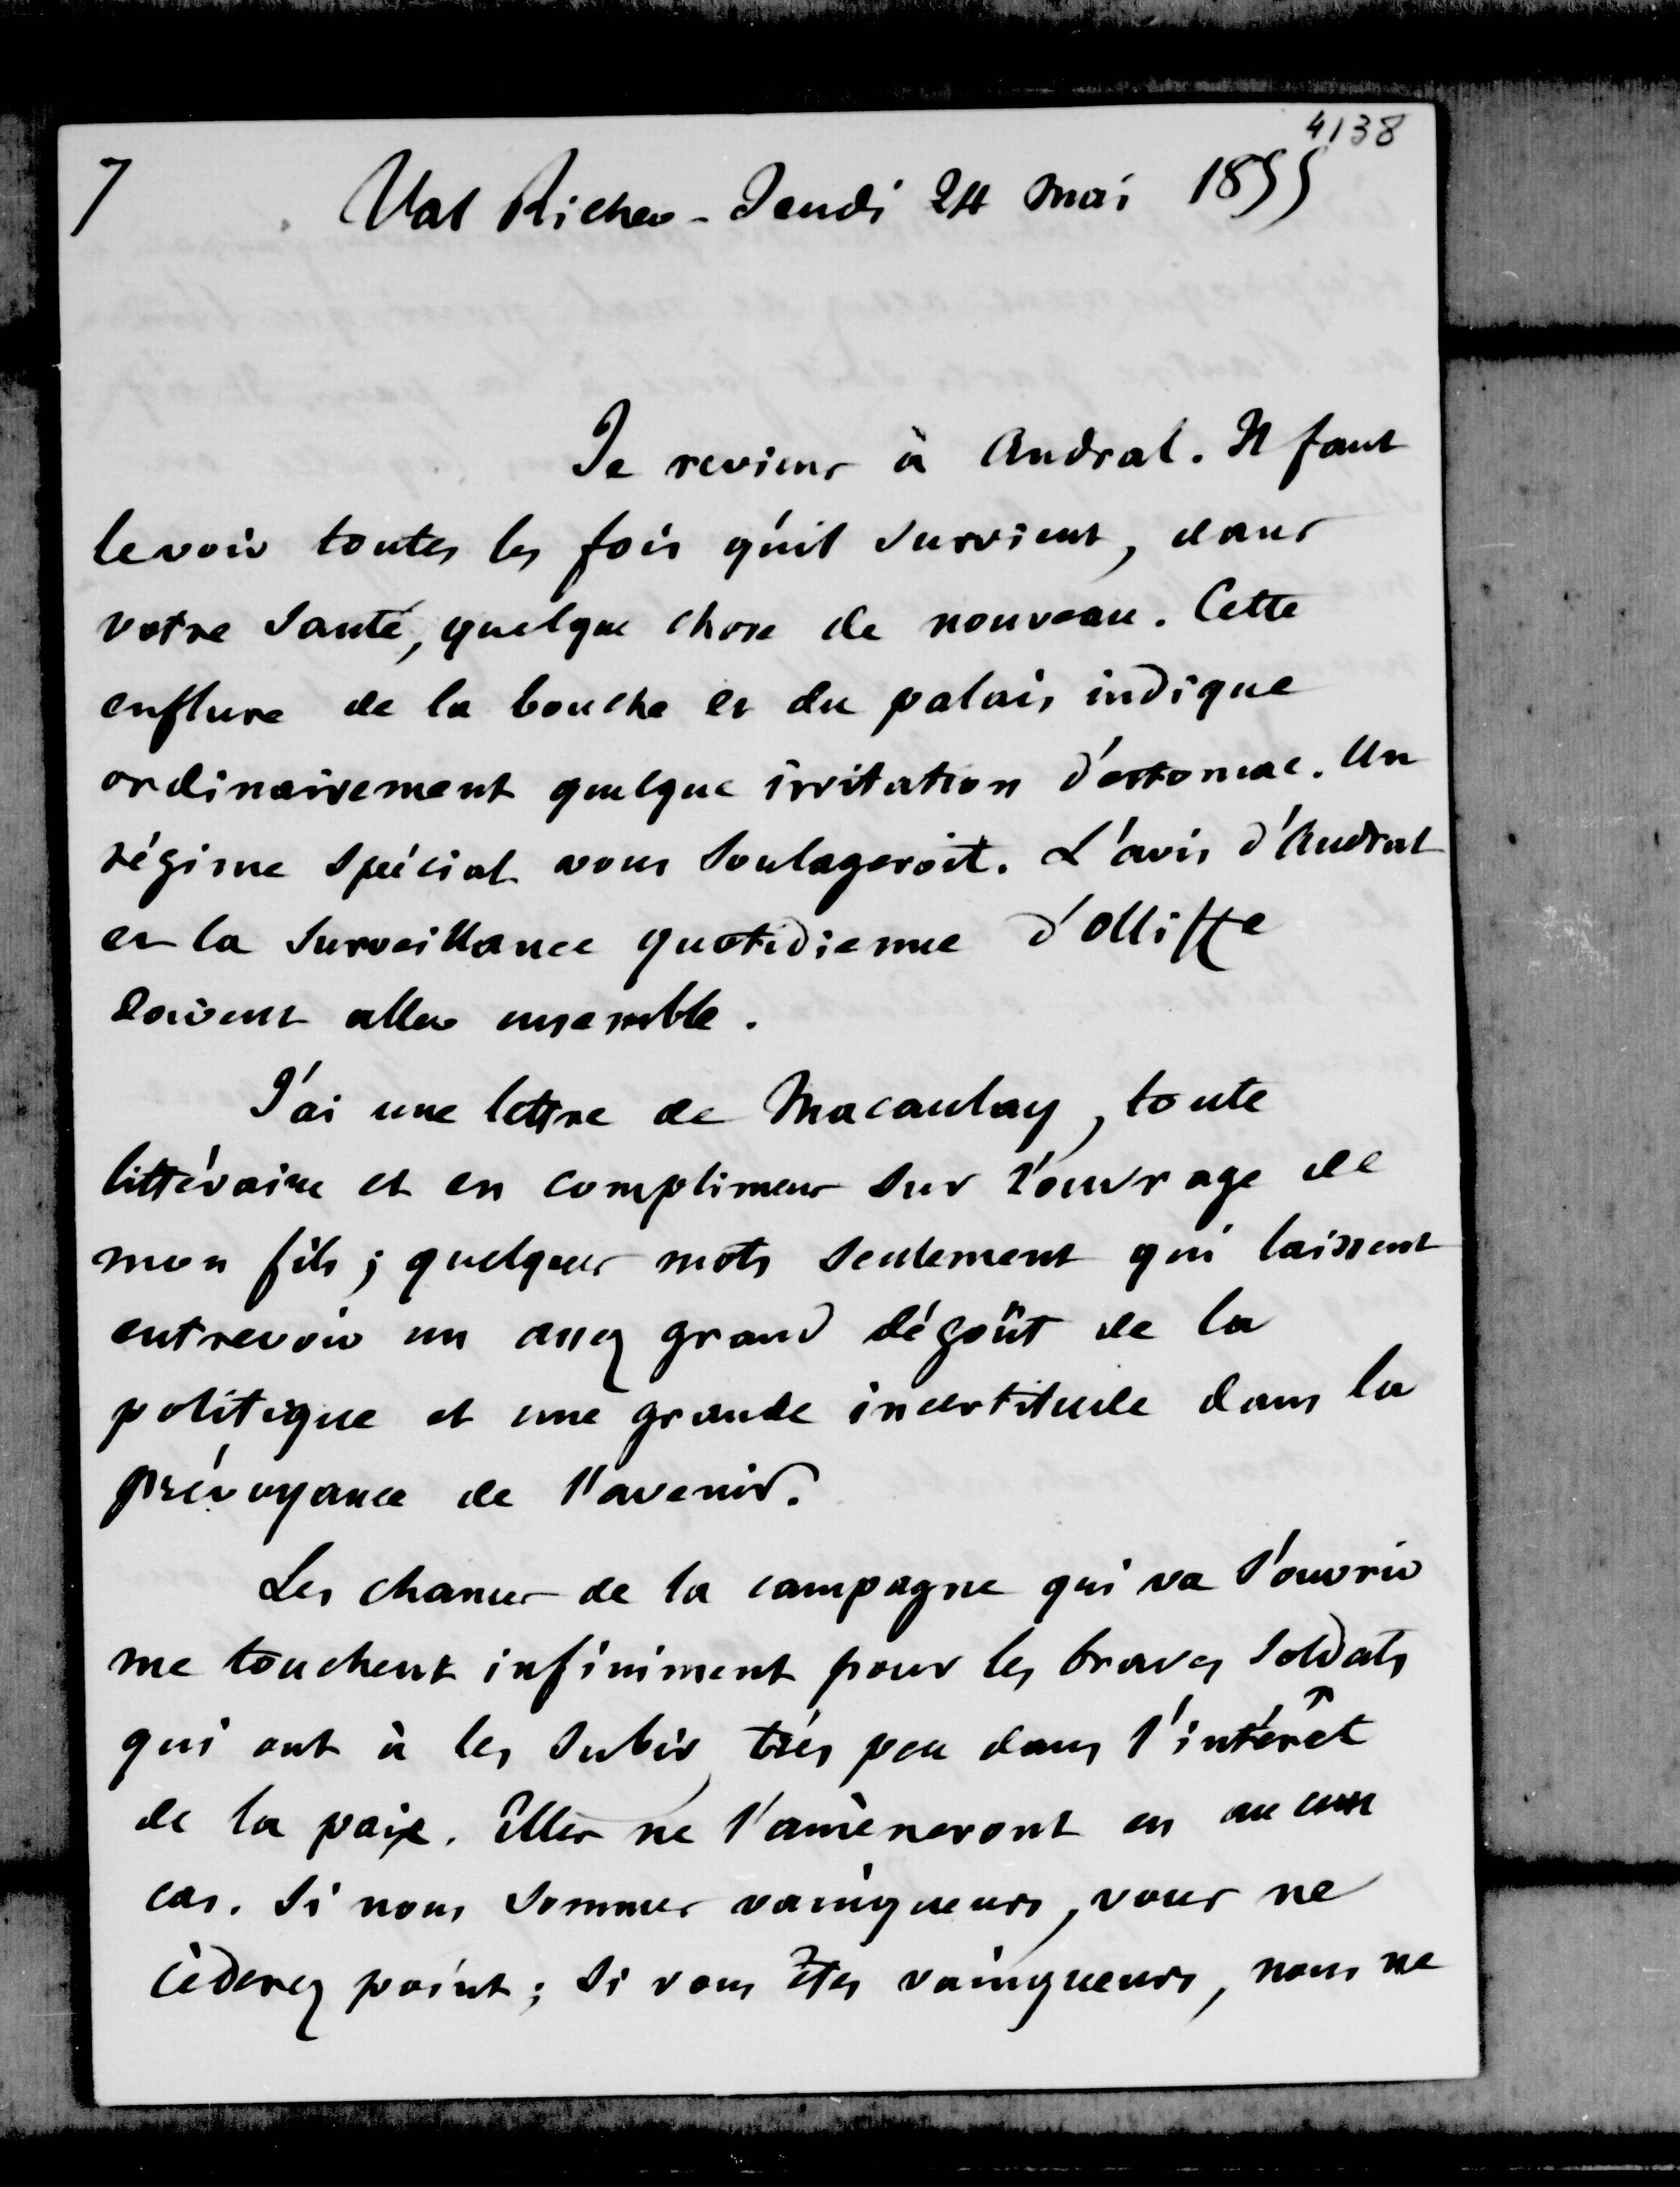 4138
7 Val Richer - Jeudi 24 Mai 1855
Je reviens à Andral. Il faut
le voir toutes les fois qu'il survient, dans
votre santé, quelque chose de nouveau. Cette
enflure de la bouche et du palais indique
ordinairement quelque irritation d'estomac. Un
régime spécial vous soulageroit. L'avis d'Andral
et la surveillance quotidienne d'Olliffe
doivent aller ensemble.
J'ai une lettre de Macaulay, toute
littéraire et en complimens sur l'ouvrage de
mon fils ; quelques mots seulement qui laissent
entrevoir un assez grand dégoût de la
politique et une grande incertitude dans la
prévoyance de l'avenir.
Les chances de la campagne qui va s'ouvrir
me touchent infiniment pour les braves soldats
qui ont à les subir, très peu dans l'intérêt
de la paix. Elles ne l'amèneront en aucun
cas. Si nous sommes vainqueurs, vous ne
cèderez point ; si vous êtes vainqueurs, nous ne